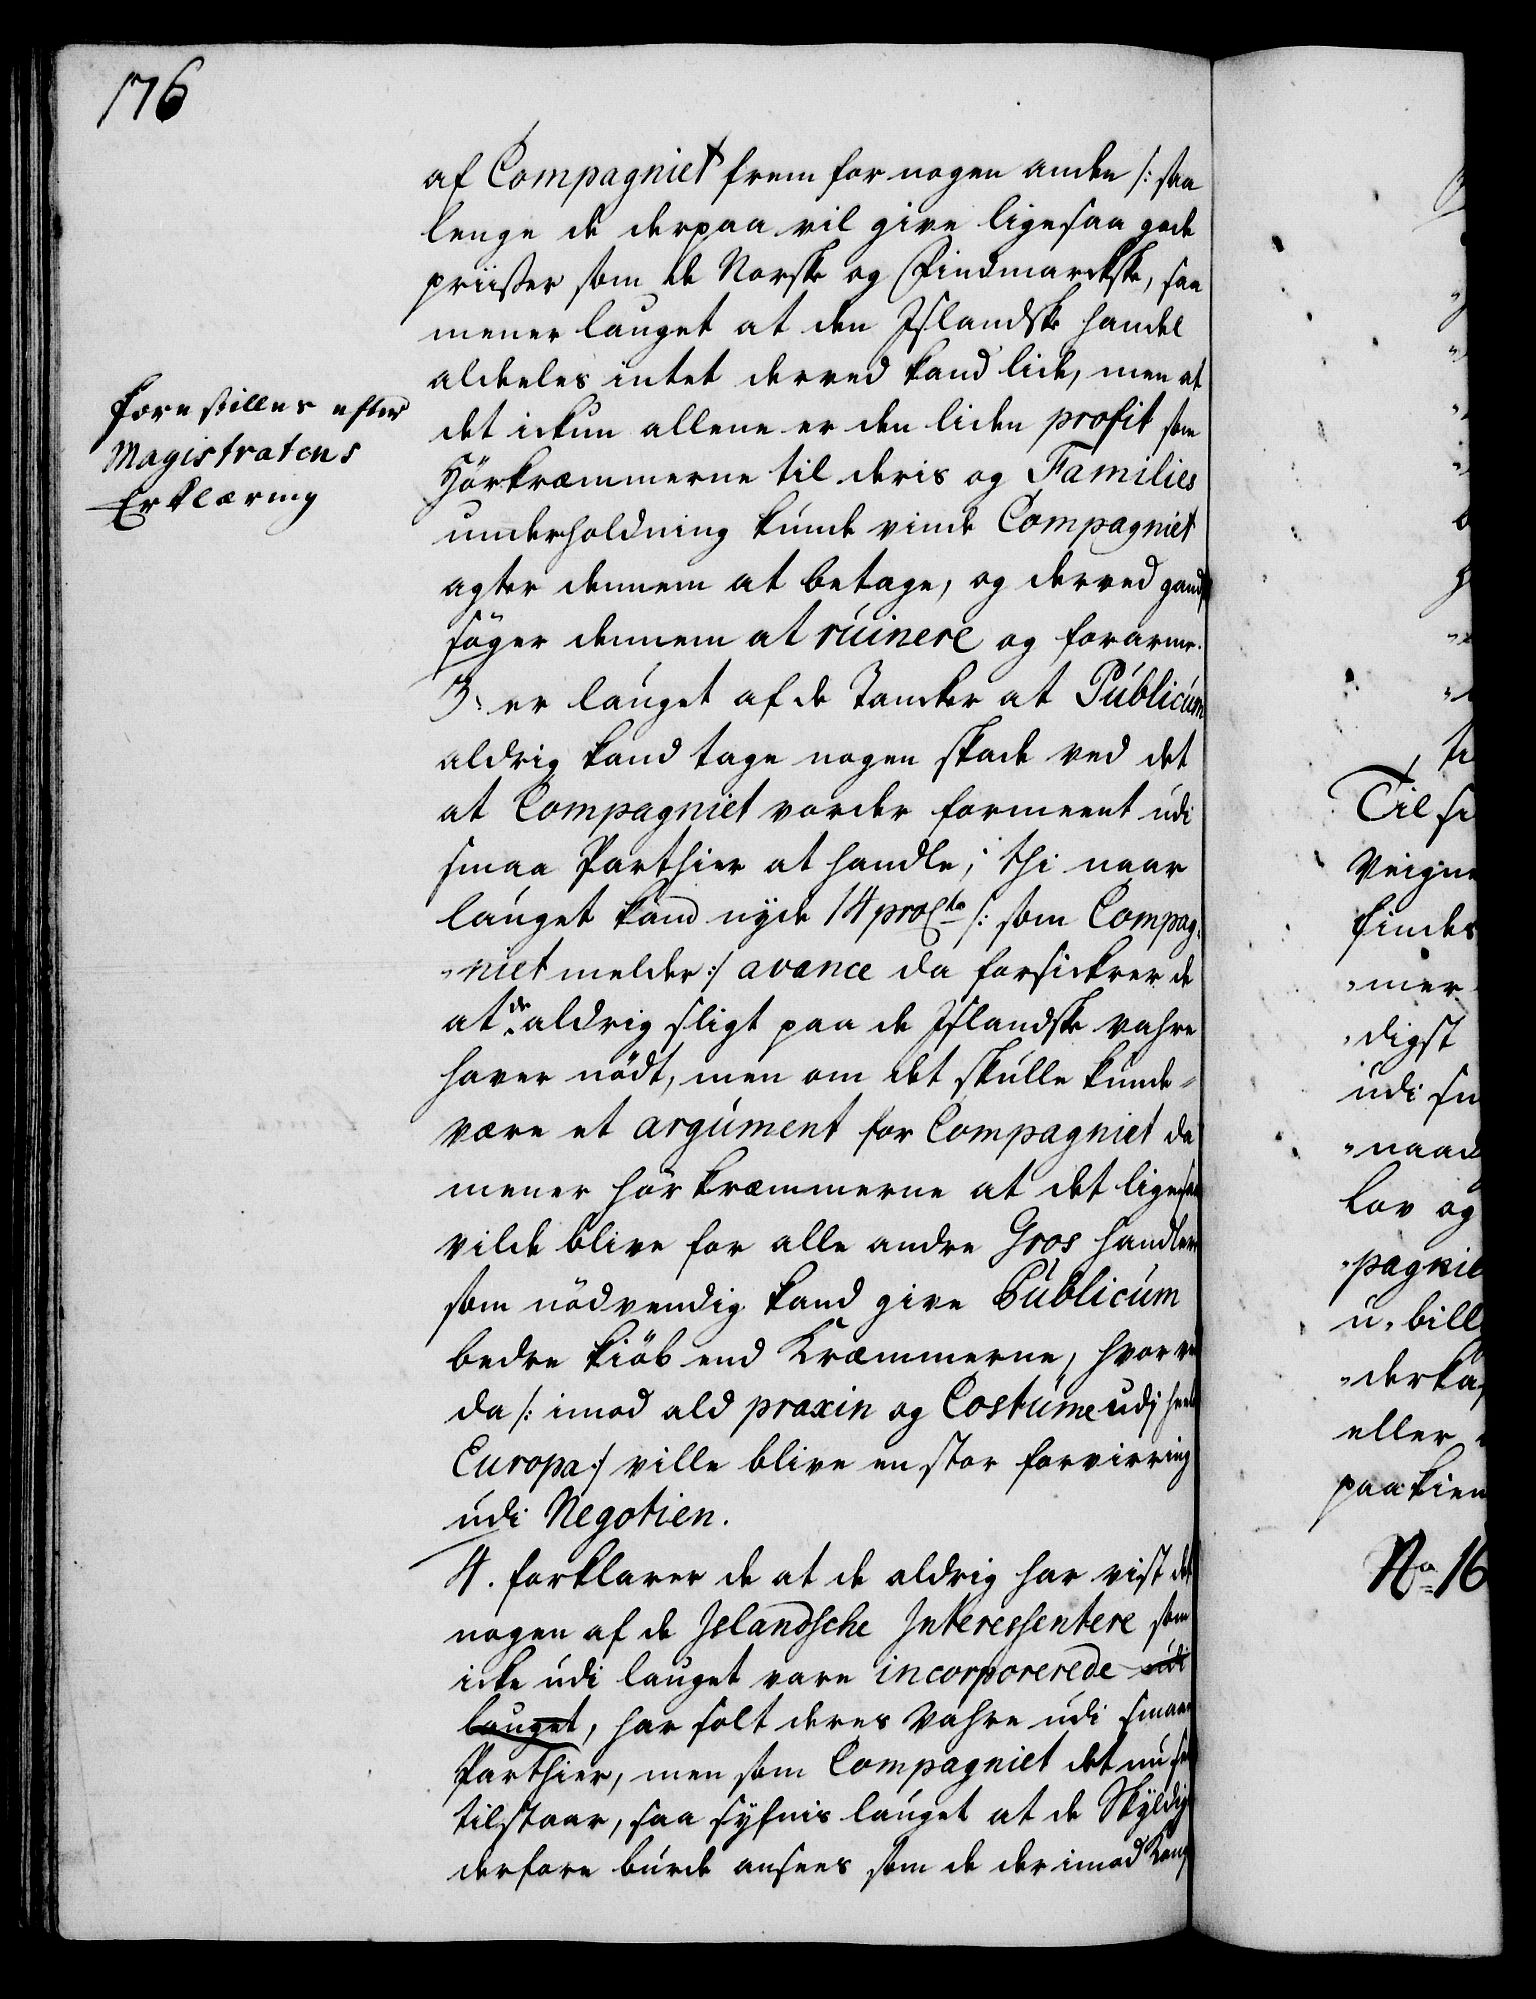 176
af Compagniet frem for nogen anden /: saa
lenge de derpaa vil give ligesaa gode
priisser som de Norske og Findmarckske, saa
mener lauget at den Islandske handel
aldeeles intet derved kand lide, men at
det ickun allene er den liden profit som
Hörkræmmerne til deris og Families
underholdning kunde vinde Compagniet
agter dennem at betage, og derved gand
söger dennem at ruinere og forarme.
3. er lauget af de Tancker at Publicum
aldrig kand tage nogen skade ved det
at Compagniet vorder formeent udi
smaa Parthier at handle; thi naar
lauget kand nyde 14 proCto /: som Compag-
niet melder :/ avance da forsickrer de
at de aldrig sligt paa de Islandske vahre
haver nödt, men om det skulle kunde
være et argument for Compagniet da
mener hörkræmmerne at det ligesaa
vilde blive for alle andre Gros handlere
som nödvendig kand give Publicum
bedre kiöb end Kræmmerne, hvor ved
da /: imod ald praxin og Costume udj heele
Europa :/ ville blive en stor forvirring
udi Negotien.
4. forklarer de at de aldrig har vist det
nogen af de Islandsche Interessentere som
icke udi lauget vare incorporerede udi
lauget, har solt deres Vahre udi smaae
Parthier, men som Compagniet det nu self
tilstaar, saa syfnis lauget at de Skyldige
derfore burde ansees som de der imod Kong
forestilles efter
Magistratens
Erklæring
Til
findes
mer
digst
udi
naad
lov og
pagnie
u-bill
eller
paa kien
No 16